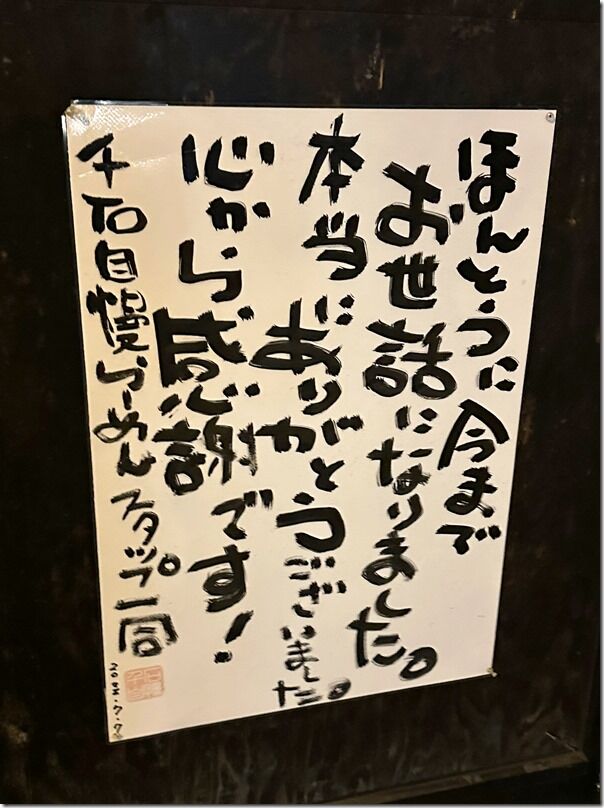 ほんとうに今まで
お世話になりました。
本当にありがとうございました。
心から感謝です！
千石自慢らーめんスタップ一同